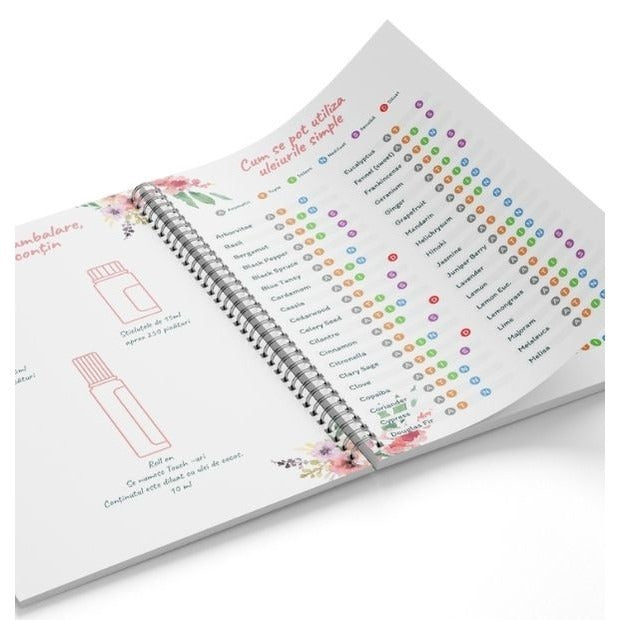 ambalare,
conțin
Sticluțele de 15ml
aprox 250 picături
Roll on
Se numesc Touch -uri
Conținutul este diluat cu ulei de cocos.
10 ml
Cum se pot utiliza
uleiurile simple
A Aromatic T Topic I Intern N Nediluat S Sensibil D Diluat
Arborvitae
Basil
Bergamot
Black Pepper
Black Spruce
Blue Tansy
Cardamom
Cassia
Cedarwood
Celery Seed
Cilantro
Cinnamon
Citronella
Clary Sage
Clove
Copaiba
Coriander
Cypress
Douglas Fir
Eucalyptus
Fennel (sweet)
Frankincense
Geranium
Ginger
Grapefruit
Mandarin
Helichrysum
Hinoki
Jasmine
Juniper Berry
Lavender
Lemon
Lemon Euc.
Lemongrass
Lime
Majoram
Melaleuca
Melisa